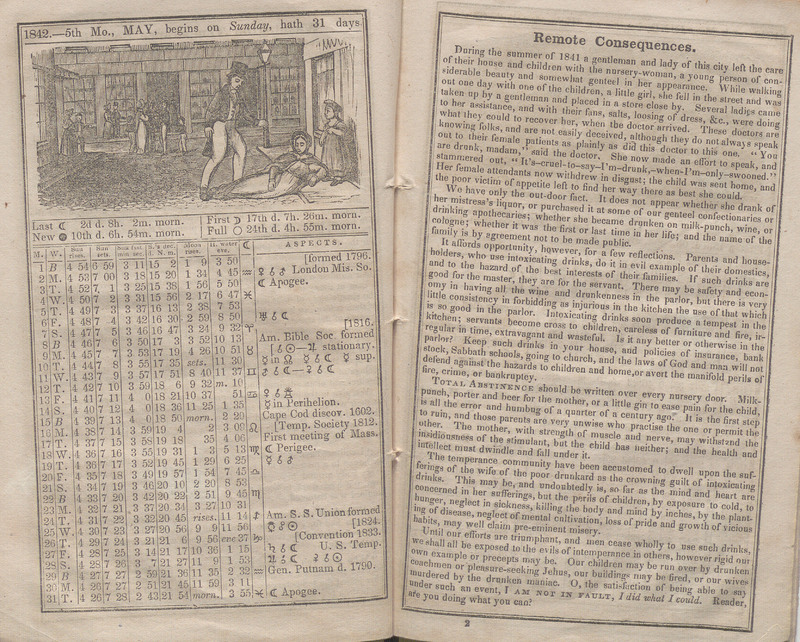 1842.—5th Mo., MAY, begins on Sunday, hath 31 days.
Last ☾ 2d d. 8h. 2m. morn.
New ● 10th d. 6h. 54m. morn.
First ☽ 17th d. 7h. 26m. morn.
Full ○ 24th d. 4h. 55m. morn.
M. W. Sun rises. Sun sets. Sun fast min. sec. S.'s dec. d. N. m. Moon rises. H. water eve. ☾ ASPECTS.
1 B 4 54 6 59 3 11 15 2 1 9 3 50 [formed 1796.
2 M. 4 53 7 00 3 18 15 20 1 34 4 45 ♒ London Mis. So.
3 T. 4 52 7 1 3 25 15 38 1 56 5 50 ☾ Apogee.
4 W. 4 50 7 2 3 31 15 56 2 17 6 47 ♓
5 T. 4 49 7 3 3 37 16 13 2 38 7 53
6 F. 4 48 7 4 3 42 16 30 2 59 8 50 ♅ ☌ ☾
7 S. 4 47 7 5 3 46 16 47 3 24 9 32 ♈ [1816.
8 B 4 46 7 6 3 50 17 3 3 52 10 13 Am. Bible Soc. formed
9 M. 4 45 7 7 3 53 17 19 4 26 10 51 ♉ stationary.
10 T. 4 44 7 8 3 55 17 35 sets. 11 30 ☿ in ☊ ☿ ☌ ☾ ☿ sup.
11 W. 4 43 7 9 3 57 17 51 8 40 11 37 ♊ ♂ ☌ ☾
12 T. 4 42 7 10 3 59 18 6 9 32 m. 10
13 F. 4 41 7 11 4 0 18 21 10 37 51 ♋
14 S. 4 40 7 12 4 0 18 36 11 25 1 35 ☿ in Perihelion.
15 B 4 39 7 13 4 0 18 50 morn. 2 25 Cape Cod discov. 1602.
16 M. 4 38 7 14 3 59 19 4 2 3 09 ♌ [Temp. Society 1812.
17 T. 4 37 7 15 3 58 19 18 35 4 06 First meeting of Mass.
18 W. 4 36 7 16 3 55 19 31 1 3 5 13 ♍ ☾ Perigee.
19 T. 4 36 7 17 3 52 19 45 1 29 6 25 ☿ ☌ ♂
20 F. 4 35 7 18 3 49 19 57 1 54 7 45 ♎
21 S. 4 34 7 19 3 46 20 10 2 20 8 53
22 B 4 33 7 20 3 42 20 22 2 51 9 45 ♏
23 M. 4 32 7 21 3 37 20 34 3 27 10 31
24 T. 4 31 7 22 3 32 20 45 rises. 11 14 ♐ Am. S. S. Union formed
25 W. 4 30 7 23 3 27 20 56 9 9 11 56 [1824.
26 T. 4 29 7 24 3 21 21 6 9 56 eve 37 ♑ [Convention 1833.
27 F. 4 28 7 25 3 14 21 17 10 36 1 15 ♄ ☌ ☾ U. S. Temp.
28 S. 4 28 7 26 3 7 21 27 11 9 1 53
29 B 4 27 7 27 2 59 21 36 11 35 2 32 ♒ Gen. Putnam d. 1790.
30 M. 4 26 7 27 2 51 21 45 11 59 3 11
31 T. 4 26 7 28 2 43 21 54 morn. 3 55 ♓ ☾ Apogee.
Remote Consequences.
During the summer of 1841 a gentleman and lady of this city left the care
of their house and children with the nursery-woman, a young person of con-
siderable beauty and somewhat genteel in her appearance. While walking
out one day with one of the children, a little girl, she fell in the street and was
taken up by a gentleman and placed in a store close by. Several ladies came
to her assistance, and with their fans, salts, loosing of dress, &c., were doing
what they could to recover her, when the doctor arrived. These doctors are
knowing folks, and are not easily deceived, although they do not always speak
out to their female patients as plainly as did this doctor to this one. "You
are drunk, madam," said the doctor. She now made an effort to speak, and
stammered out, "It's-cruel-to-say-I'm-drunk,-when-I'm-only-swooned."
Her female attendants now withdrew in disgust; the child was sent home, and
the poor victim of appetite left to find her way there as best she could.
We have only the out-door fact. It does not appear whether she drank of
her mistress's liquor, or purchased it at some of our genteel confectionaries or
drinking apothecaries; whether she became drunken on milk-punch, wine, or
cologne; whether it was the first or last time in her life; and the name of the
family is by agreement not to be made public.
It affords opportunity, however, for a few reflections. Parents and house-
holders, who use intoxicating drinks, do it in evil example of their domestics,
and to the hazard of the best interests of their families. If such drinks are
good for the master, they are for the servant. There may be safety and econ-
omy in having all the wine and drunkenness in the parlor, but there is very
little consistency in forbidding as injurious in the kitchen the use of that which
is so good in the parlor. Intoxicating drinks soon produce a tempest in the
kitchen; servants become cross to children, careless of furniture and fire, ir-
regular in time, extravagant and wasteful. Is it any better or otherwise in the
parlor? Keep such drinks in your house, and policies of insurance, bank
stock, Sabbath schools, going to church, and the laws of God and man will not
defend against the hazards to children and home, or avert the manifold perils of
fire, crime, or bankruptcy.
TOTAL ABSTINENCE should be written over every nursery door. Milk-
punch, porter and beer for the mother, or a little gin to ease pain for the child,
is all the error and humbug of a quarter of a century ago. It is the first step
to ruin, and those parents are very unwise who practise the one or permit the
other. The mother, with strength of muscle and nerve, may withstand the
insidiousness of the stimulant, but the child has neither; and the health and
intellect must dwindle and fall under it.
The temperance community have been accustomed to dwell upon the suf-
ferings of the wife of the poor drunkard as the crowning guilt of intoxicating
drinks. This may be, and undoubtedly is, so far as the mind and heart are
concerned in her sufferings, but the perils of children, by exposure to cold, to
hunger, neglect in sickness, killing the body and mind by inches, by the plant-
ing of disease, neglect of mental cultivation, loss of pride and growth of vicious
habits, may well claim pre-eminent misery.
Until our efforts are triumphant, and men cease wholly to use such drinks,
we shall all be exposed to the evils of intemperance in others, however rigid our
own example or precepts may be. Our children may be run over by drunken
coachmen or pleasure-seeking Jehus, our buildings may be fired, or our wives
murdered by the drunken maniac. O, the satisfaction of being able to say
under such an event, I AM NOT IN FAULT, I did what I could. Reader,
are you doing what you can?
2